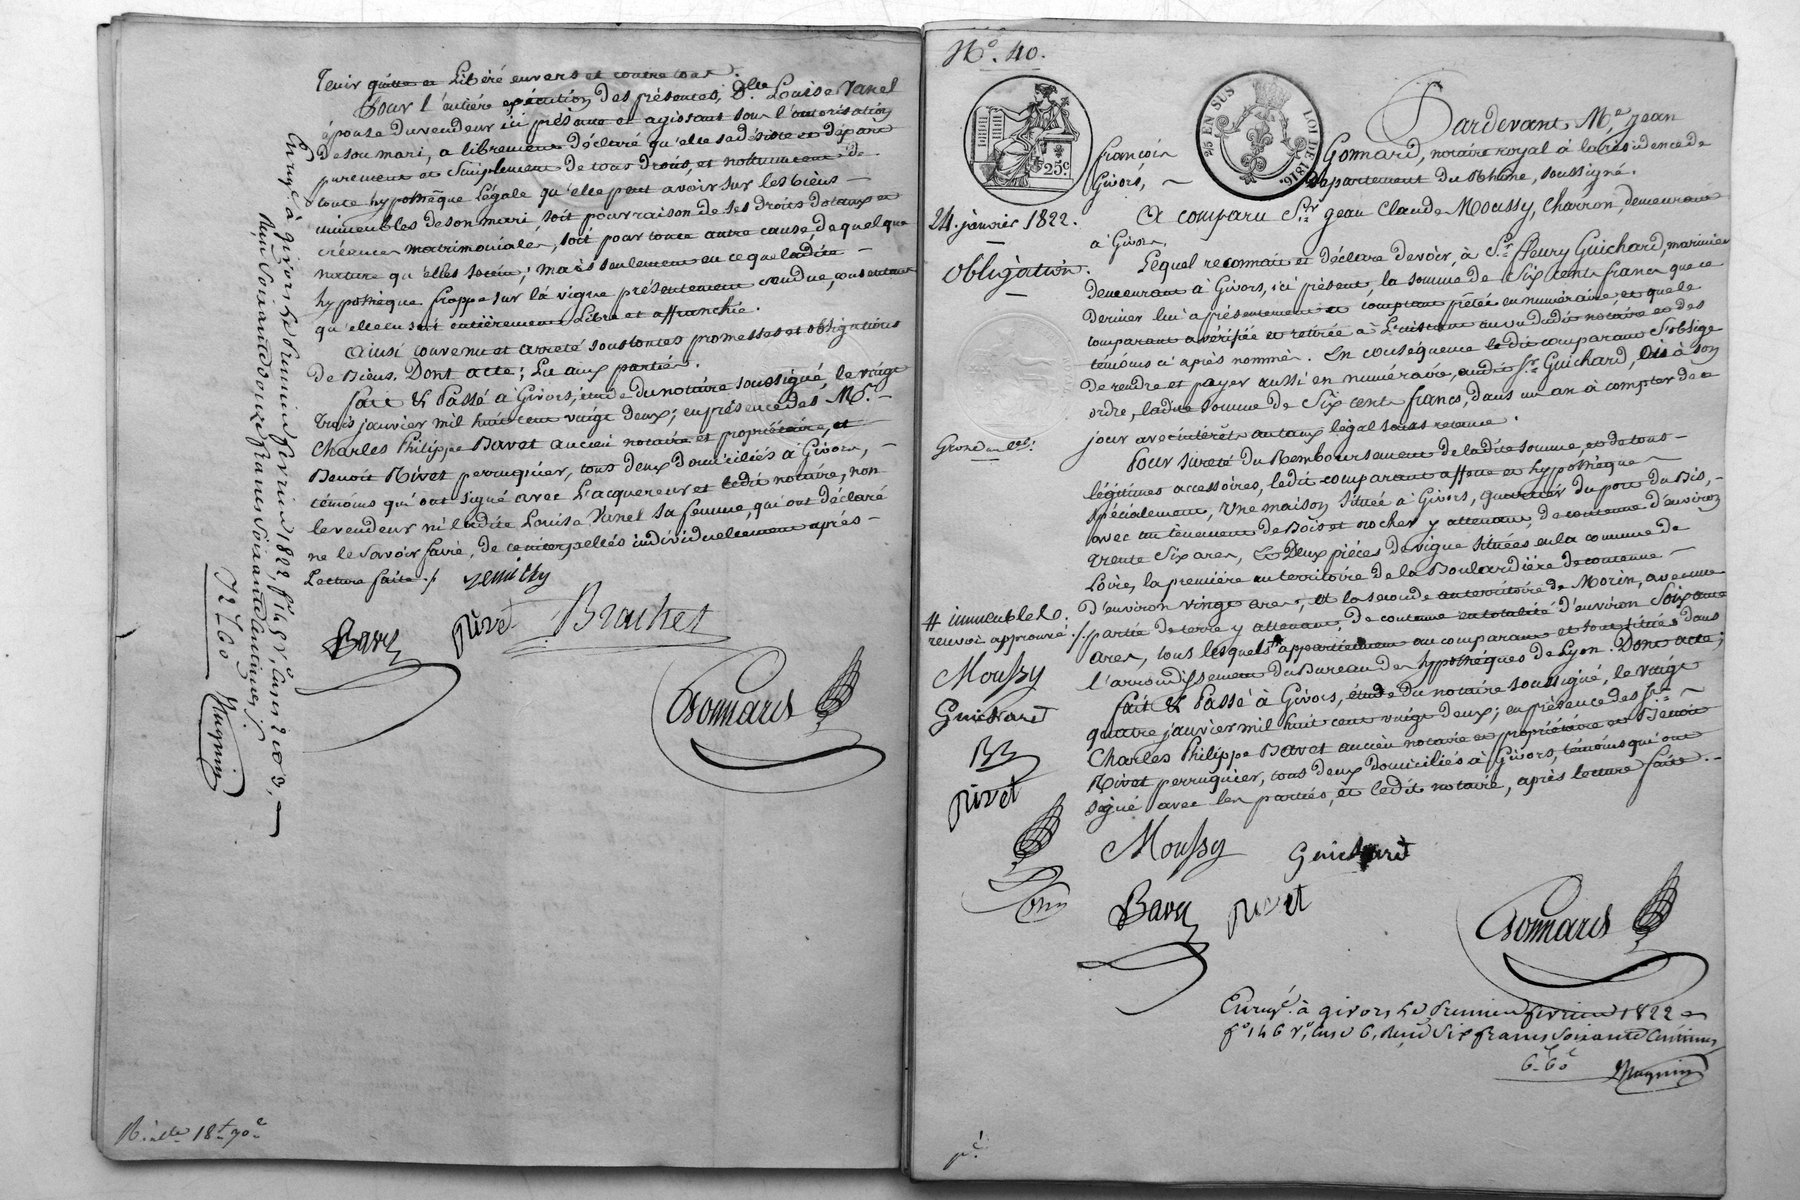 tenir quitte et Libéré envers et contre tous.
Pour l'entière exécution des présentes, dlle Louise Vanel
épouse du vendeur ici présente et agissant sous l'autorisation
de son mari, a librement déclaré qu'elle se désiste et départ
purement et simplement de tous droits, et notamment de
toute hypothèque Légale qu'elle peut avoir sur les biens
immeubles de son mari, soit pour raison de ses droits dotaux et
créances matrimoniales, soit pour toute autre cause de quelque
nature qu'elles soient; mais seulement en ce que ladite
hypothèque frappe sur la vigne présentement vendue, consentant
qu'elle en soit entièrement Libre et affranchie.
Ainsi convenu et arreté sous toutes promesses et obligations
de Biens. Dont acte; Lu aux parties.
fait & Passé à Givors, étude du notaire soussigné, le vingt
trois janvier mil huit cent vingt deux; en présence des Mrs.
Charles Philippe Bavet ancien notaire et propriétaire, et
Benoit Rivet perruquier, tous deux domiciliés à Givors,
témoins qui ont signé avec L'acquereur et ledit notaire, non
le vendeur ni ladite Louise Vanel sa femme, qui ont déclaré
ne le savoir faire, de ce interpellés individuellement après
Lecture faite ./.
Bavet
rivet
Brachet
Gonnard
Enregé. à givors le premier fevrier 1822, fo. 145 vo. Cases 2 et 3,
Reçu Soixante douze francs Soixante Centimes ./.
72f 60
Magnin
18f 70c
No. 40.
25 EN SUS
LOI DE 1816.
25c.
Pardevant Me. Jean
françois Gonnard, notaire royal à la résidence de
Givors, département du Rhône, soussigné.
24. janvier 1822.
Obligation.
A comparu Sr. Jean Claude Moussy, charron, demeurant
à Givors.
Lequel reconnait et déclare devoir, à Sr. fleury Guichard, marinier
demeurant à Givors, ici présent, la somme de Six cent francs que ce
dernier lui a présentement et comptant prêtée en numéraire et que le
comparant a vérifiée et retirée à L'instant au vu dudit notaire et des
témoins ci après nommés. En conséquence ledit comparant s'oblige
de rendre et payer aussi en numéraire, audit Sr. Guichard, ou à son
ordre, ladite somme de Six cent francs, dans un an à compter de ce
jour avec intérêts au taux légal sans retenue.
Grosse
Pour sureté du Remboursement de ladite somme, et de tous
légitimes accessoires, ledit comparant affecte et hypothèque
spécialement, une maison située à Givors, quartier du port du Bis,
avec un ténement de Bois et rocher y attenant, de contenue d'environ
trente six ares, & Deux pièces de vigne situées en la commune de
Loire, la première au territoire de la Boulardière de contenue
d'environ vingt ares, et la seconde au territoire de Morin, avec une
partie de terre y attenant, de contenue en totalité d'environ Soixante
ares, tous lesquels # appartiennent au comparant et sont situés dans
l'arrondissement du Bureau des hypothèques de Lyon. Dont acte;
# immeubles.
renvoi approuvé ./.
Moussy
Guichard
rivet
fait & Passé à Givors, étude du notaire soussigné, le vingt
quatre janvier mil huit cent vingt deux; en présence des Srs.
Charles Philippe Bavet ancien notaire et propriétaire et Benoit
Rivet perruquier, tous deux domiciliés à Givors, témoins qui ont
signé avec les parties, et ledit notaire, après lecture faite.
Moussy
Guichard
Bavet
rivet
Gonnard
Enregé. à givors le premier fevrier 1822
fo. 146 ro. Case 6, Reçu Six francs Soixante Centimes
6f 60c
Magnin